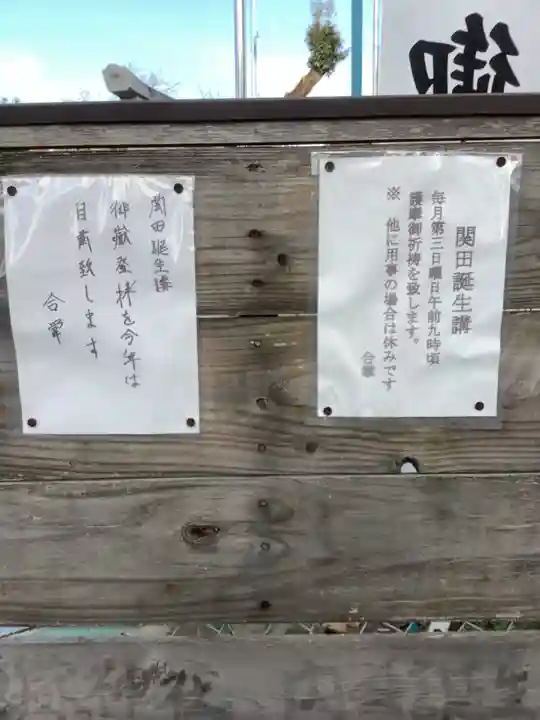 御
関田誕生講
毎月第三日曜日午前九時頃
護摩御祈祷を致します。
※ 他に用事の場合は休みです
合掌
関田誕生講
御嶽登拝を今年は
自粛致します
合掌